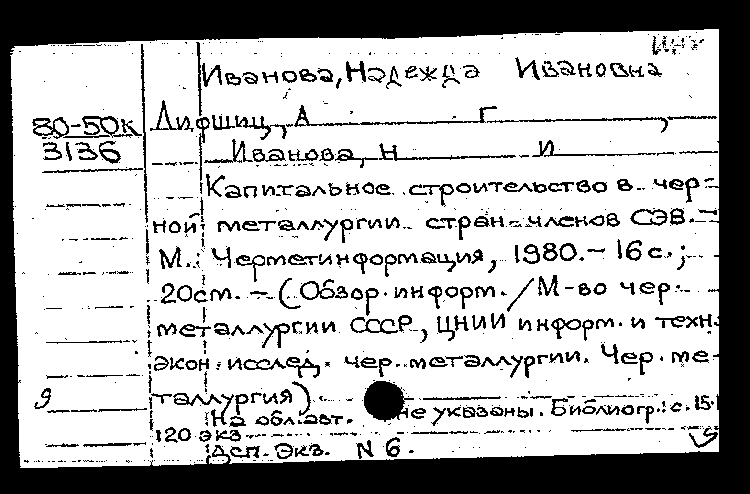 ИНХ
Иванова, Надежда Ивановна
80-50к Лифшиц, А Г ,
3136 Иванова, Н И
Капитальное строительство в чер-
ной металлургии стран-членов СЭВ. -
М.: Черметинформация, 1980. - 16 с.;
20cm. - (Обзор. информ. / М-во чер.
металлургии СССР, ЦНИИ информ. и техн.
экон. исслед. чер. металлургии. Чер. ме-
таллургия).
9 На обл. авт. не указаны. Библиогр.: с. 15-
120 экз
Дсп. Экз. N 6.